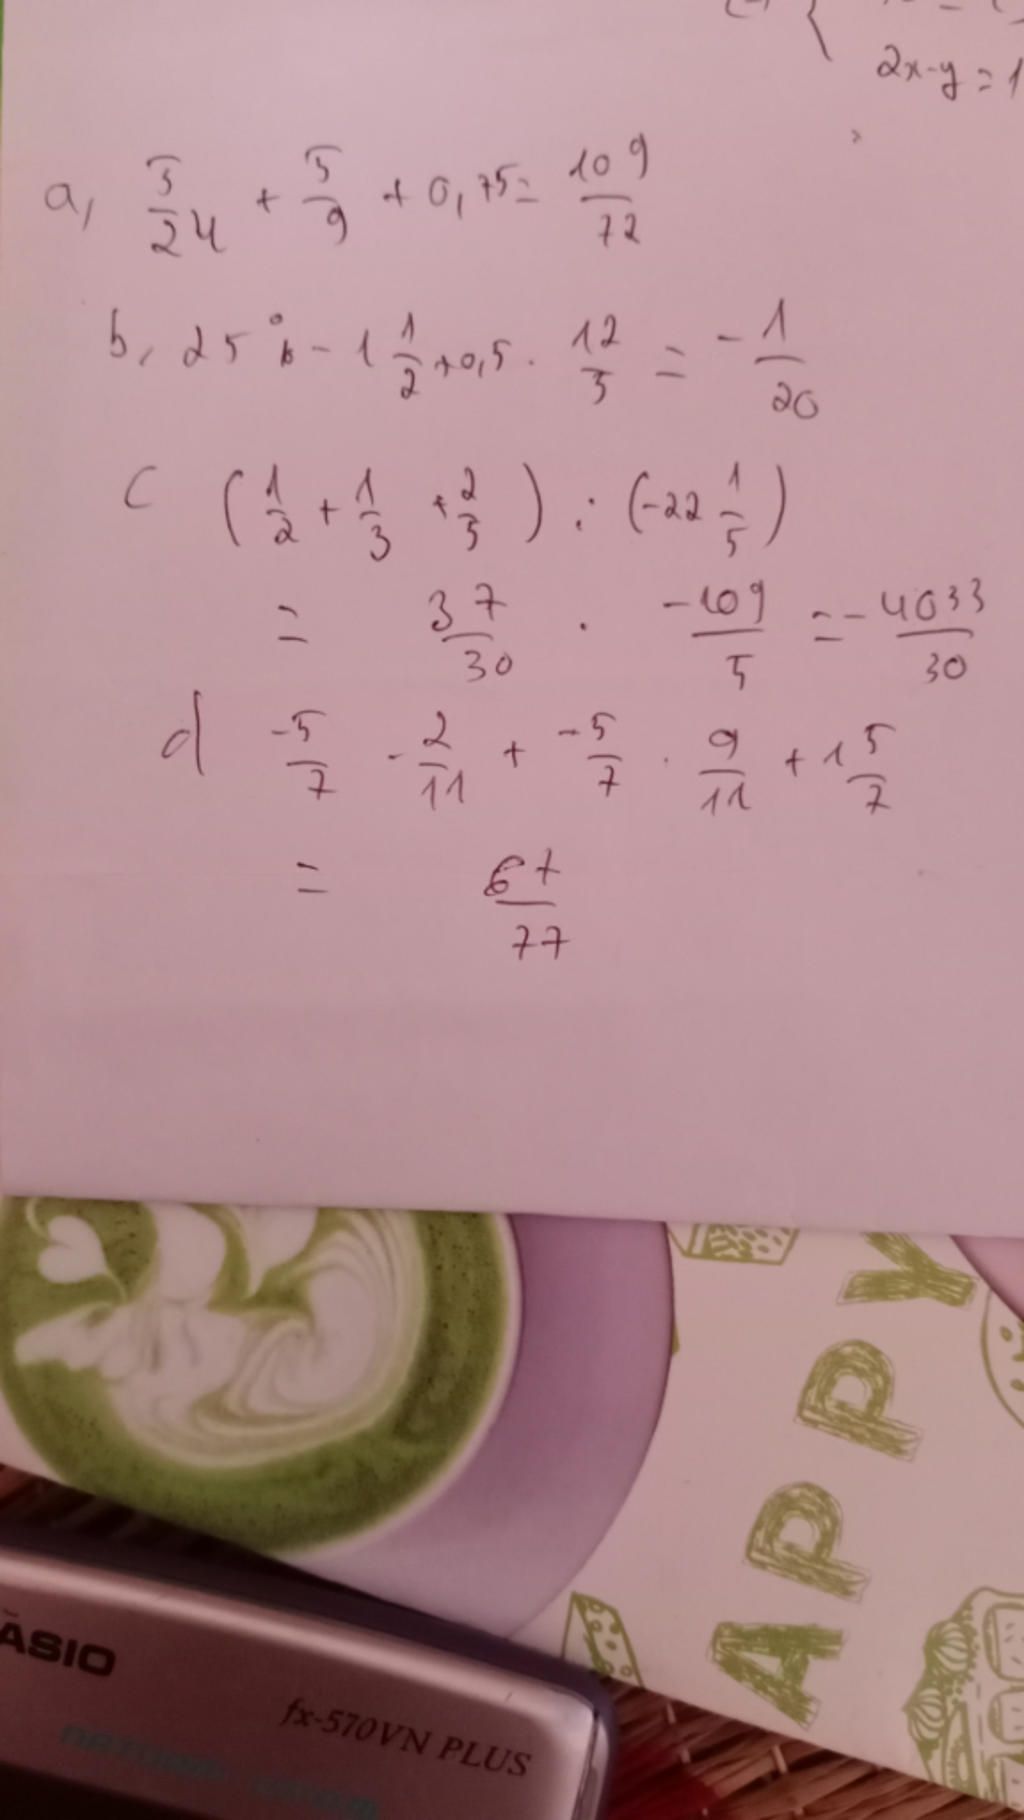 2x-y=1
a, 5/24 + 5/9 + 0,75 = 109/72
b, 25% - 1 1/2 + 0,5 . 12/5 = - 1/20
c (1/2 + 1/3 + 2/5) : (-22 1/5)
= 37/30 . -109/5 = - 4033/30
d -5/7 - 2/11 + -5/7 . 9/11 + 1 5/7
= 67/77
APPY
fx-570VN PLUS